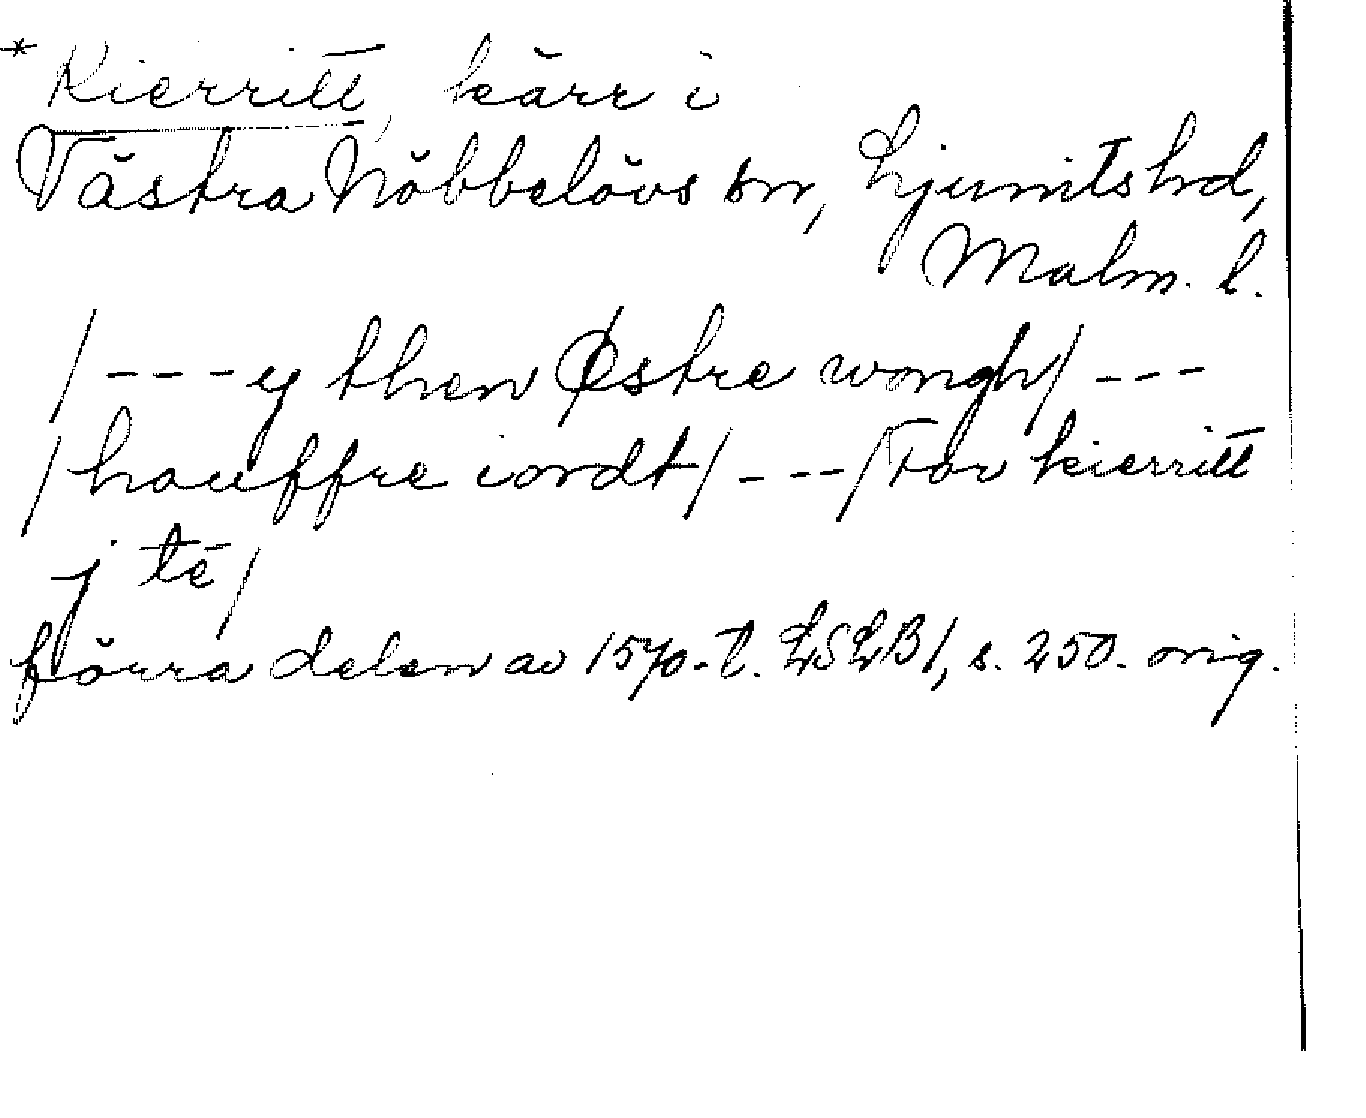 * Kierritt, kärr i
Västra Nöbbelövs sn, Ljunits hd,
Malm. l.
/---y then Østre wongh/---
/houffre iordt/---/For kierritt
j te/
förra delen av 1570-t. LSLB1, s. 250. orig.